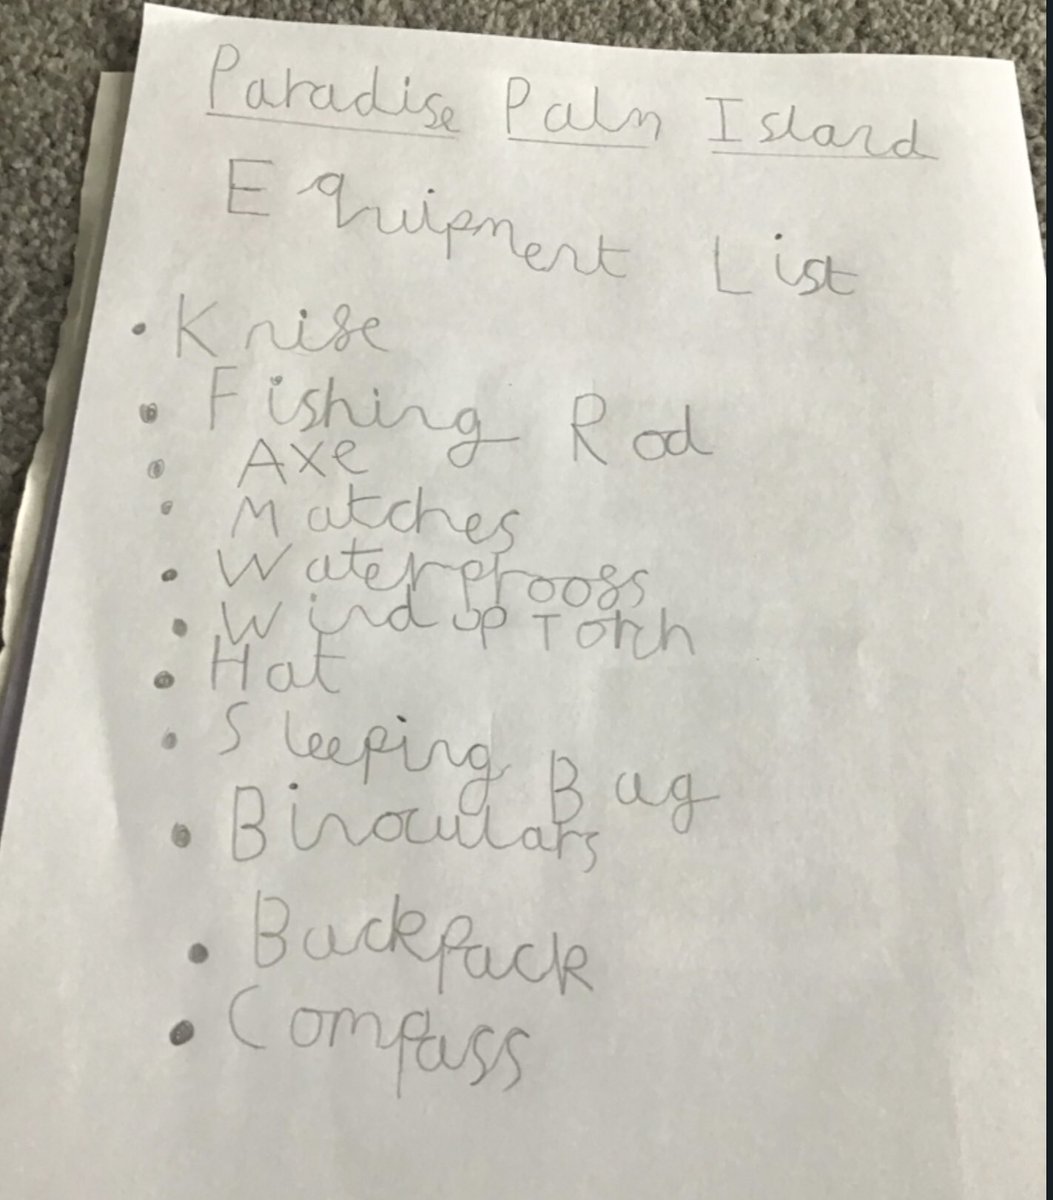 Paradise Palm Island
Equipment List
• Knife
• Fishing Rod
• Axe
• Matches
• Waterproofs
• Wind up Torch
• Hat
• Sleeping Bag
• Binoculars
• Backpack
• Compass